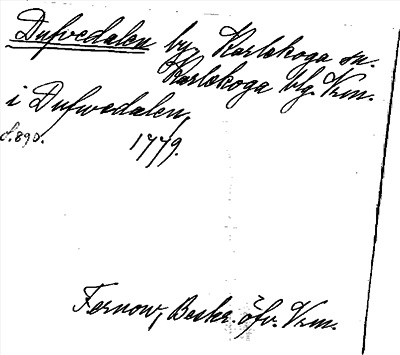 Dufvedalen by Karlskoga sn.
Karlskoga blg. Vrm.
i Dufwedalen,
s. 890. 1779.
Fernow, Beskr. öfv. Vrm.